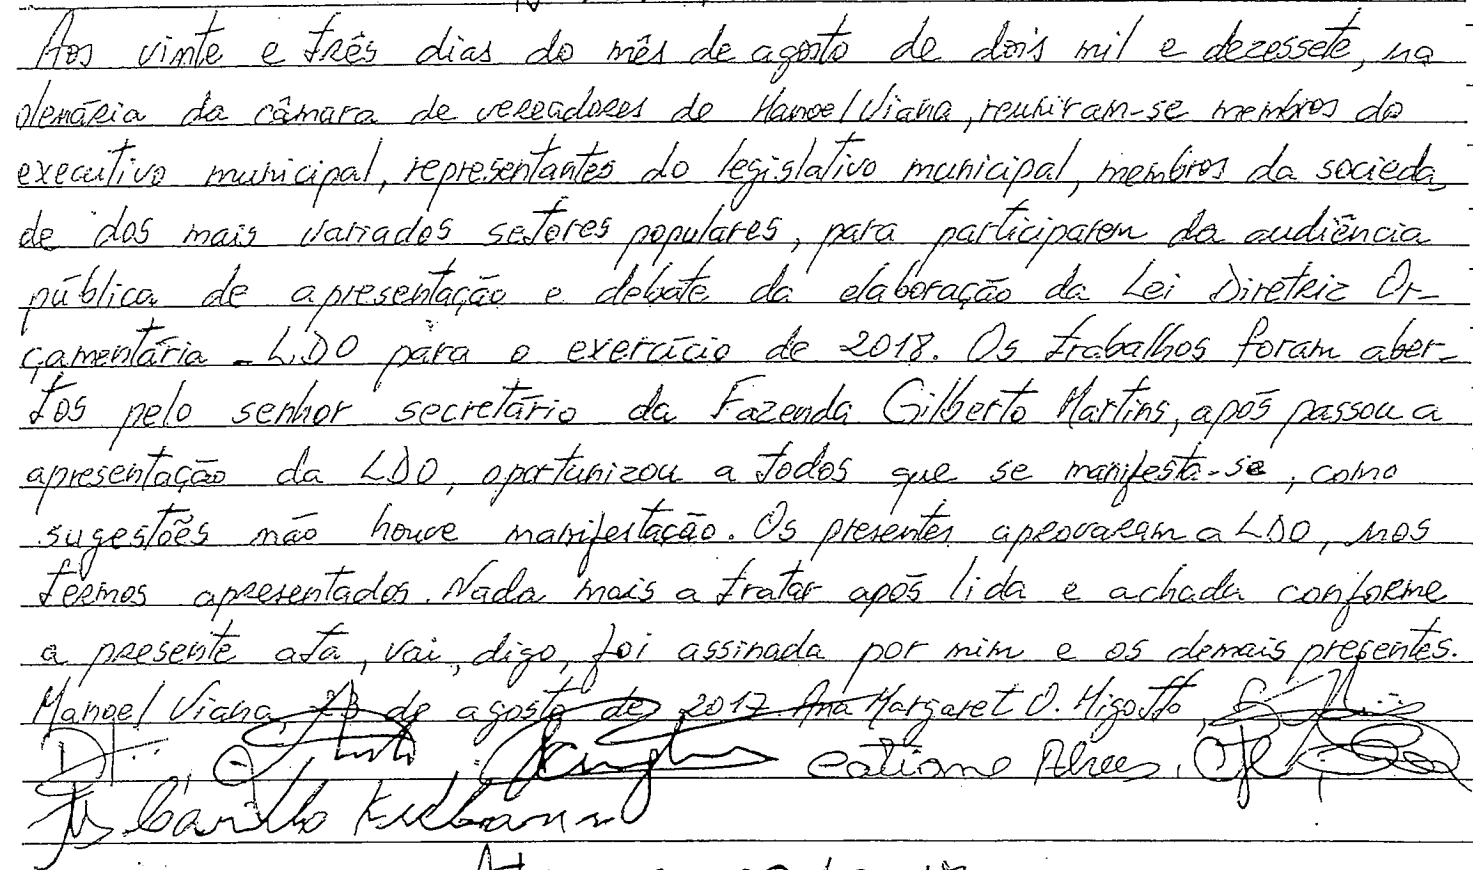 Aos vinte e três dias do mês de agosto de dois mil e dezessete, na
plenária da câmara de vereadores de Manoel Viana, reuniram-se membros do
executivo municipal, representantes do legislativo municipal, membros da socieda
de dos mais variados setores populares, para participarem da audiência
pública de apresentação e debate da elaboração da Lei Diretriz Or-
çamentária - LDO para o exercício de 2018. Os trabalhos foram aber-
tos pelo senhor secretário da Fazenda Gilberto Martins, após passou a
apresentação da LDO, oportunizou a todos que se manifesta-se, como
sugestões não houve manifestação. Os presentes aprovaram a LDO, nos
termos apresentados. Nada mais a tratar após lida e achada conforme
a presente ata, vai, digo, foi assinada por mim e os demais presentes.
Manoel Viana 23 de agosto de 2017. Ana Margaret O. Migotto,
Catiane Alves,